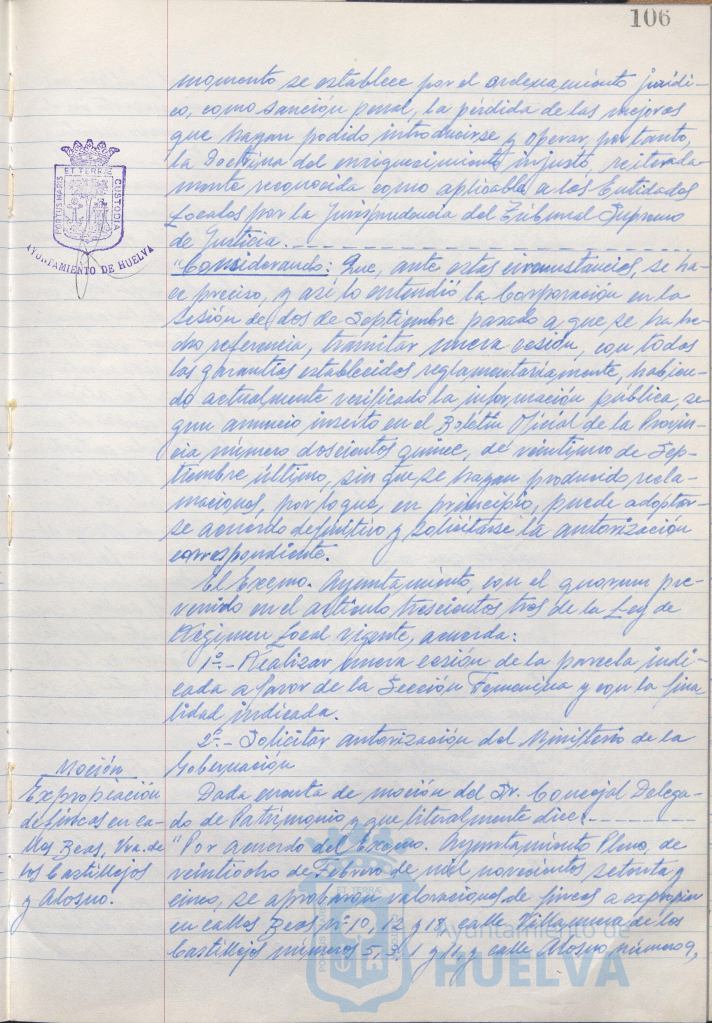 106
momento se establece por el ordenamiento jurídi-
co, como sanción penal, la pérdida de las mejoras
que hayan podido introducirse y operar, por tanto,
la Doctrina del enriquecimiento injusto, reiterada-
mente reconocida como aplicable a las Entidades
Locales por la Jurisprudencia del Tribunal Supremo
de Justicia.
PORTUS MARIS ET TERRÆ CUSTODIA
AYUNTAMIENTO DE HUELVA
"Considerando: Que, ante estas circunstancias, se ha-
ce preciso, y así lo entendió la Corporación en la
sesión de dos de Septiembre pasado a que se ha he-
cho referencia, tramitar nueva cesión, con todas
las garantías establecidas reglamentariamente, habien-
do actualmente verificado la información pública, se-
gun anuncio inserto en el Boletín Oficial de la Provin-
cia número doscientos quince, de veintiuno de Sep-
tiembre último, sin que se hayan producido recla-
maciones, por lo que, en principio, puede adoptar-
se acuerdo definitivo y solicitarse la autorización
correspondiente.
El Excmo. Ayuntamiento, con el quorum pre-
venido en el artículo trescientos tres de la Ley de
Régimen Local vigente, acuerda:
1º.- Realizar nueva cesión de la parcela indi-
cada a favor de la Sección Femenina y con la fina-
lidad indicada.
2º.- Solicitar autorización del Ministerio de la
Gobernación
Moción
Expropiación
de fincas en ca-
lles Beas, Vva. de
los Castillejos
y Alosno.
Dada cuenta de moción del Sr. Concejal Delega-
do de Patrimonio y que literalmente dice:
"Por acuerdo del Excmo. Ayuntamiento Pleno, de
veintiocho de Febrero de mil novecientos setenta y
cinco, se aprobaron valoraciones de fincas a expropiar
en calles Beas nº 10, 12 y 18, calle Villanueva de los
Castillejos números 5, 3, 1 y 11, y calle Alosno número 9,
Ayuntamiento de
HUELVA